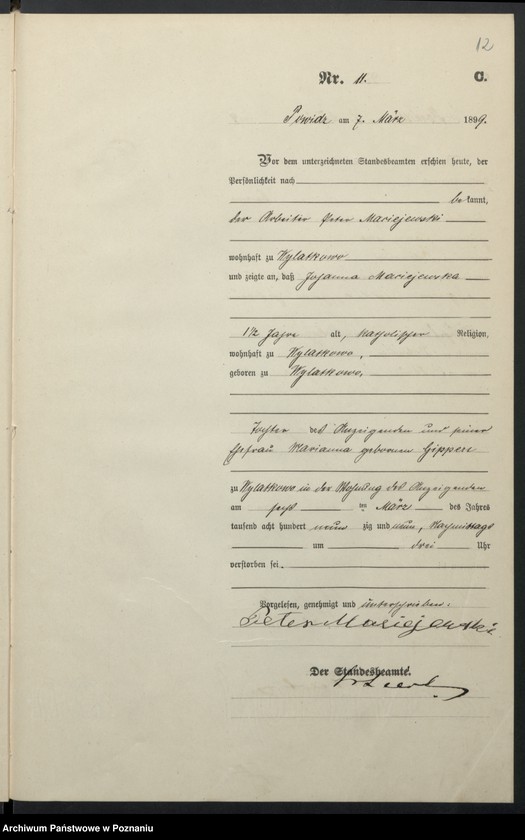 12
Nr. 11.
C.
Powidz am 7. März 1899.
Vor dem unterzeichneten Standesbeamten erschien heute, der
Persönlichkeit nach
bekannt,
der Arbeiter Peter Maciejewski
wohnhaft zu Wylatkowo
und zeigte an, daß Johanna Maciejewska
1½ Jahre alt, katholischer Religion,
wohnhaft zu Wylatkowo,
geboren zu Wylatkowo,
Tochter des Anzeigenden und seiner
Ehefrau Marianna geborenen
zu Wylatkowo in der Wohnung des Anzeigenden
am ten März des Jahres
tausend acht hundert neun zig und neun, Nachmittags
um drei Uhr
verstorben sei.
Vorgelesen, genehmigt und unterschrieben.
Peter Maciejewski
Der Standesbeamte.
Archiwum Państwowe w Poznaniu